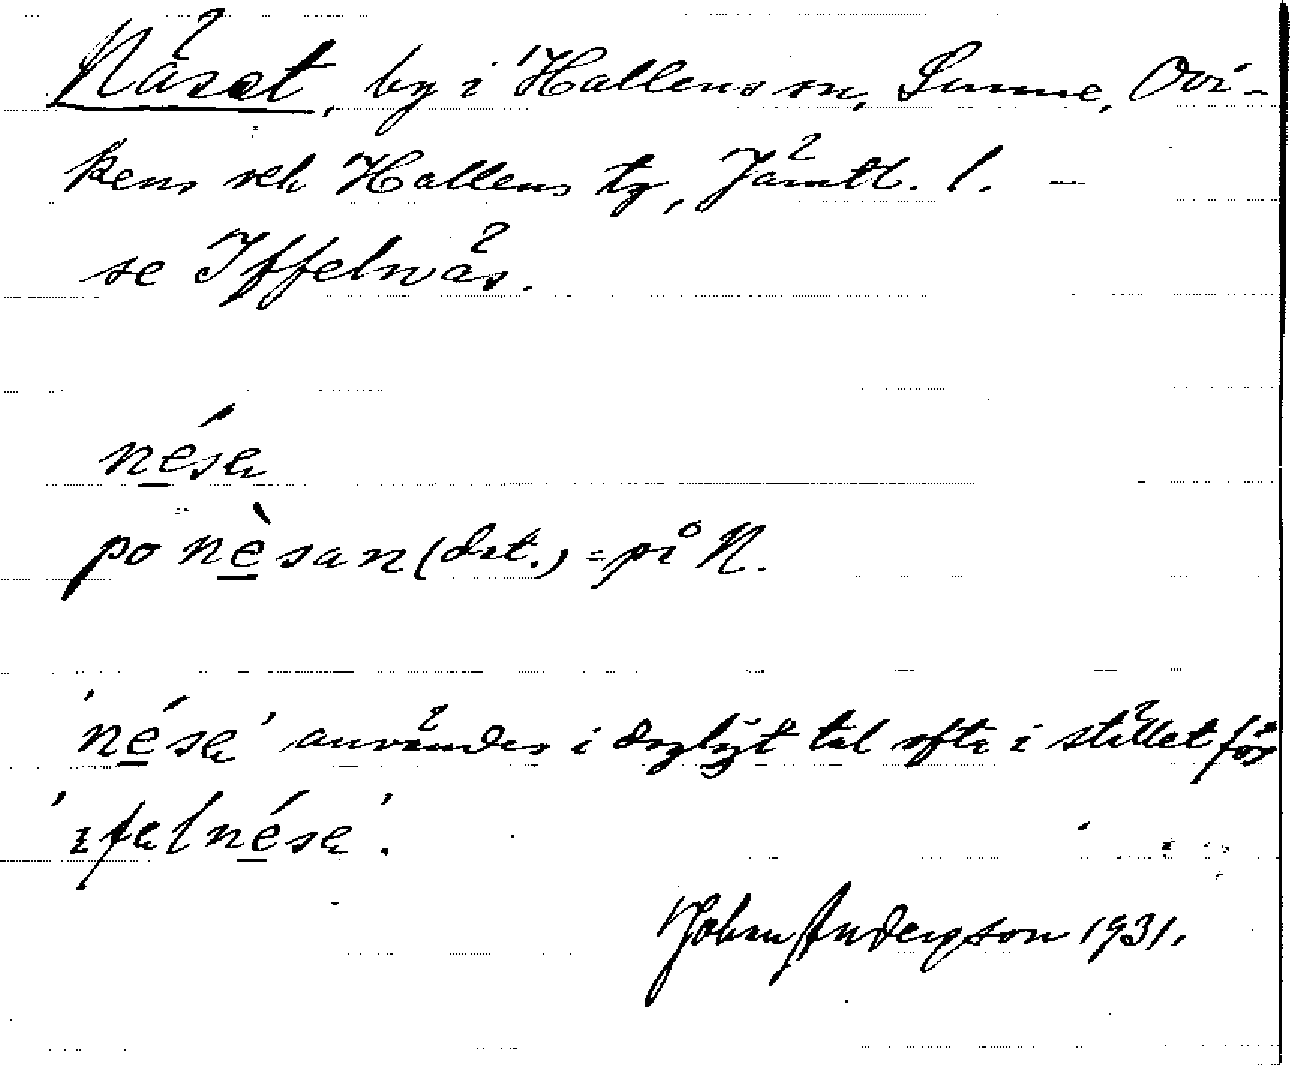 Näset, by i Hallens sn, Sunne, Ovi-
kens och Hallens tg, Jämtl. l. –
se Iffelnäs.
nésa
po nèsan (dat.) = på N.
'nésa' användes i dagligt tal ofta i stället för
'ifalnésa'.
Johan Anderson 1931.